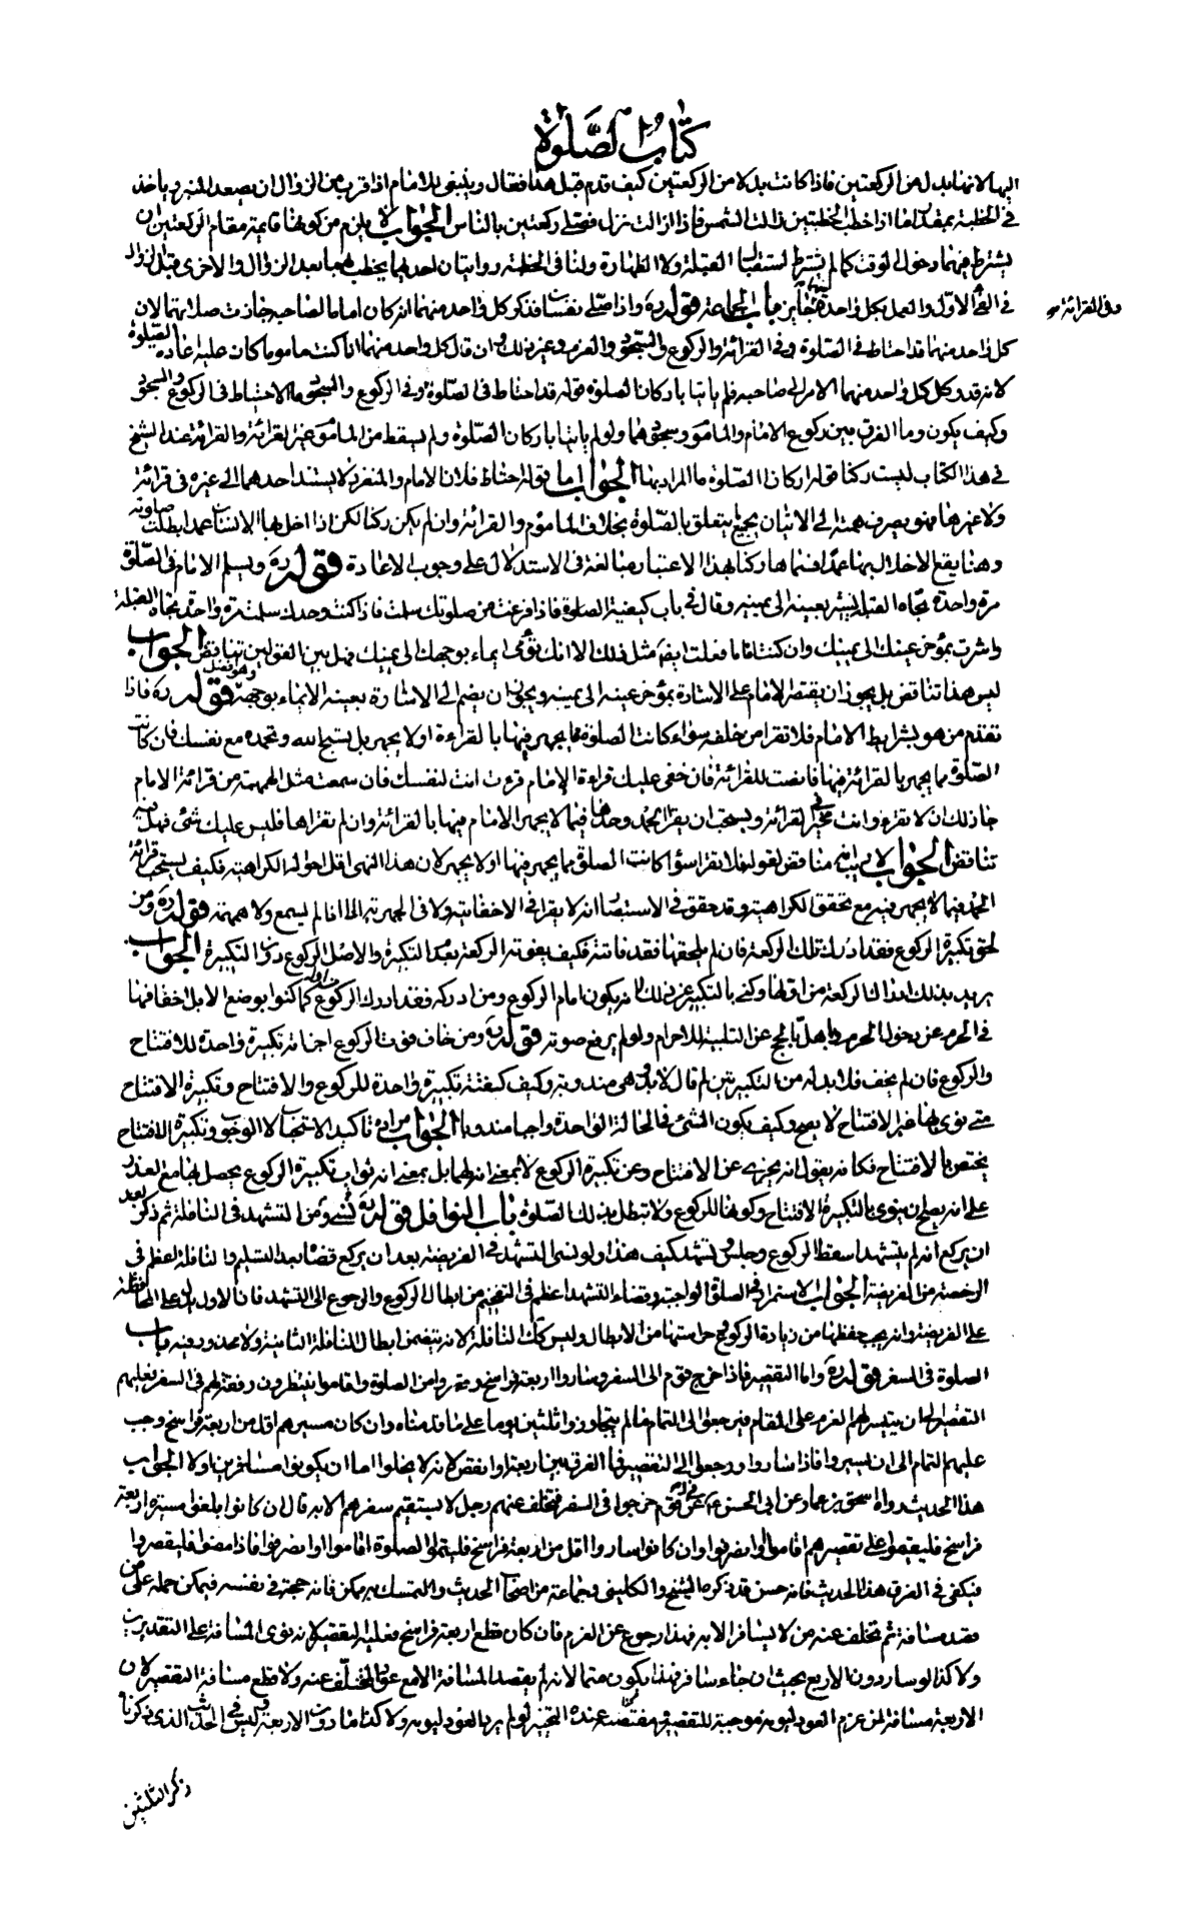 كتاب الصلوة
اليها لانها بدل من الركعتين فاذا كانت بدلا من الركعتين كيف قدم قبل هذا فقال وينبغى للامام اذا قرب من الزوال ان يصعد المنبر وياخذ
فى الخطبة بمقدار ما اذا خطب الخطبتين زالت الشمس فاذا زالت نزل فصلى ركعتين بالناس الجواب لا يلزم من كونها قائمة مقام الركعتين ان
يشترط فيهما دخول الوقت كما لم يشترط استقبال القبلة ولا الطهارة ولنا فى الخطبة روايتان احدهما يخطب بعد الزوال والاخرى قبل الزوال
فى الفئ الاول والعمل بكل واحدة جايز باب الجماعة قوله ره واذا صلى نفسان فذكر كل واحد منهما انه كان اماما لصاحبه جازت صلاتهما لان
وفى القرائة
كل واحد منهما قد احتاط فى الصلوة وفى القرائة والركوع والسجود والعزم وغير ذلك وان قال كل واحد منهما انا كنت ماموما كان عليه اعادة الصلوة
لانه قد وكل كل واحد منهما الامر الى صاحبه فلم ياتيا باركان الصلوة قوله قد احتاط فى الصلوة وفى الركوع والسجود ما الاحتياط فى الركوع والسجود
وكيف يكون وما الفرق بين ركوع الامام والماموم وسجودهما ولو لم ياتيا باركان الصلوة ولم يسقط من الماموم غير القرائة والقرائة عند الشيخ
فى هذا الكتاب ليست ركنا قوله اركان الصلوة ما المراد بها الجواب اما قوله احتاط فلان الامام والمنفرد لا يستند احدهما الى غيره فى قرائة
ولا غيرها فهو يصرف همته الى الاتيان بجميع ما يتعلق بالصلوة بخلاف الماموم والقرائة وان لم يكن ركنا لكن اذا اخل بها الانسان عمدا بطلت صلوته
وهنا يقع الاخلال بهما عمدا فسماها ركنا بهذا الاعتبار مبالغة فى الاستدلال على وجوب الاعادة قوله ره ويسلم الامام فى الصلوة
مرة واحدة تجاه القبلة يشير بعينه الى يمينه وقال فى باب كيفية الصلوة فاذا فرغت من صلوتك سلمت فاذا كنت وحدك سلمت مرة واحدة تجاه القبلة
واشرت بمؤخر عينك الى يمينك وان كنت اماما فعلت ايضا مثل ذلك الا انك تؤمى ايماء بوجهك الى يمينك فهل بين القولين تناقض الجواب
ليس هذا تناقض بل يجوز ان يقتصر الامام على الاشارة بمؤخر عينه الى يمينه ويجوز ان يضم الى الاشارة بعينه الايماء بوجهه وهو افضل قوله ره فاذا
تقدم من هو بشرايط الامام فلا تقرا من خلفه سواء كانت الصلوة مما يجهر فيها بالقراءة او لا يجهر بل يسبح الله وتحمده مع نفسك فان كانت
الصلوة مما يجهر بالقرائة فيها فانصت للقرائة فان خفى عليك قراءة الامام قرءت انت لنفسك فان سمعت مثل الهمهمة من قرائة الامام
جاز ذلك ان لا تقرء وانت مخير فى القرائة ويستحب ان يقرا الحمد وحدها فيما لا يجهر الامام فيها بالقرائة وان لم تقراها فليس عليك شئ فهل فيه
تناقض الجواب
الحمد فيما لا يجهر فيه مع تحقق الكراهية وقد حقق فى الاستبصار انه لا يقرا فى الاخفاتية ولا فى الجهرية الا اذا لم يسمع ولا همهمة قوله ره ومن
لحق تكبيرة الركوع فقد ادرك تلك الركعة فان لم يلحقها فقد فاتته فكيف يفوته الركعة بعد التكبيرة والاصل الركوع دون التكبيرة الجواب
يريد بذلك ادراك الركعة من اولها وكنى بالتكبير عن ذلك لانه يكون امام الركوع ومن ادركه فقد ادرك الركوع من اوله كما كنوا بوضع الابل اخفافها
فى الحرم عن دخول الحرم واهل بالحج عن التلبية للاحرام ولو لم يرفع صوته قوله ره ومن خاف فوت الركوع اجزأته تكبيرة واحدة للافتتاح
والركوع فان لم يخف فلا بد له من التكبيرتين لم قال لا بد وهى مندوبة وكيف كيفية تكبيرة واحدة للركوع والافتتاح وتكبيرة الافتتاح
متى نوى بها غير الافتتاح لا يصح وكيف يكون الشئ فى الحالة الواحدة واجبا مندوبا الجواب مراده تاكيد الاستحباب لا الوجوب وتكبيرة الافتتاح
يختص بالافتتاح فكانه يقول انه يجزى عن الافتتاح وعن تكبيرة الركوع لا بمعنى انه لهما بل بمعنى انه ثواب تكبيرة الركوع يحصل بها مع العذر
على انه يصلح ان ينوى بالتكبيرة الافتتاح وكونها للركوع ولا تبطل بذلك الصلوة باب النوافل قوله ره نسى ومن التشهد فى النافلة ثم ذكر بعد
ان يركع انه لم يتشهد اسقط الركوع وجلس وتشهد كيف هذا ولو نسى التشهد فى الفريضة بعد ان يركع قضاه بعد التسليم والنافلة اعظم فى
الرخصة من الفريضة الجواب الاستمرار فى الصلوة الواجبة وقضاء التشهد اعظم فى التفخيم من ابطال الركوع والرجوع الى التشهد فان الاول يدل على المحافظة
على الفريضة وانه يجب حفظها من زيادة الركوع وحراستها من الابطال وليس كك النافلة لانه يتضمن ابطال النافلة الثانية ولا محذور فيه باب
الصلوة فى السفر قوله ره واما التقصير فاذا خرج قوم الى السفر وساروا اربعة فراسخ وقصروا من الصلوة واقاموا ينتظرون رفقة لهم فى السفر فعليهم
التقصير الى ان يتيسر لهم العزم على المقام فيرجعوا الى التمام ما لم يتجاوزوا ثلثين يوما على ما قدمناه وان كان مسيرهم اقل من اربعة فراسخ وجب
عليهم التمام الى ان يسيروا فاذا ساروا رجعوا الى التقصير فما الفرق بين اربعة او انقص لانه لا يخلوا اما ان يكونوا مسافرين او لا الجواب
هذا الحديث رواه اسحق بن عمار عن ابى الحسن ع عن قوم خرجوا فى السفر فتخلف عنهم رجل لا يستقيم سفرهم الا به قال ان كانوا بلغوا مسيرة اربعة
فراسخ فليقيموا على تقصيرهم اقاموا او انصرفوا وان كانوا ساروا اقل من اربعة فراسخ فليتموا الصلوة اقاموا او انصرفوا فاذا مضوا فليقصروا
فيكفى فى الفرق هذا الحديث فانه حسن قد ذكره الشيخ والكلينى وجماعة من اصحاب الحديث والتمسك به ممكن فانه حجة فى نفسه فيمكن حمله على من
قصد مسافة ثم تخلف عنه من لا يسافر الا به فهذا رجوع عن العزم فان كان قطع اربعة فراسخ فعليه التقصير لانه نوى المسافة على التقديرين
ولا كذا لو سار دون الاربع بحيث ان جاء سافر فهذا يكون متما لانه لم يقصد المسافة الا مع عود المتخلف عنه ولا قطع مسافة التقصير لان
الاربعة مسافة لمن عزم العود ليومه موجبة للتقصير فهى مقتضية عنده التخيير لو لم يرد العود ليومه ولا كذا ما دون الاربعة وليس فى الحديث الذى ذكرناه
ذكر الثلثين